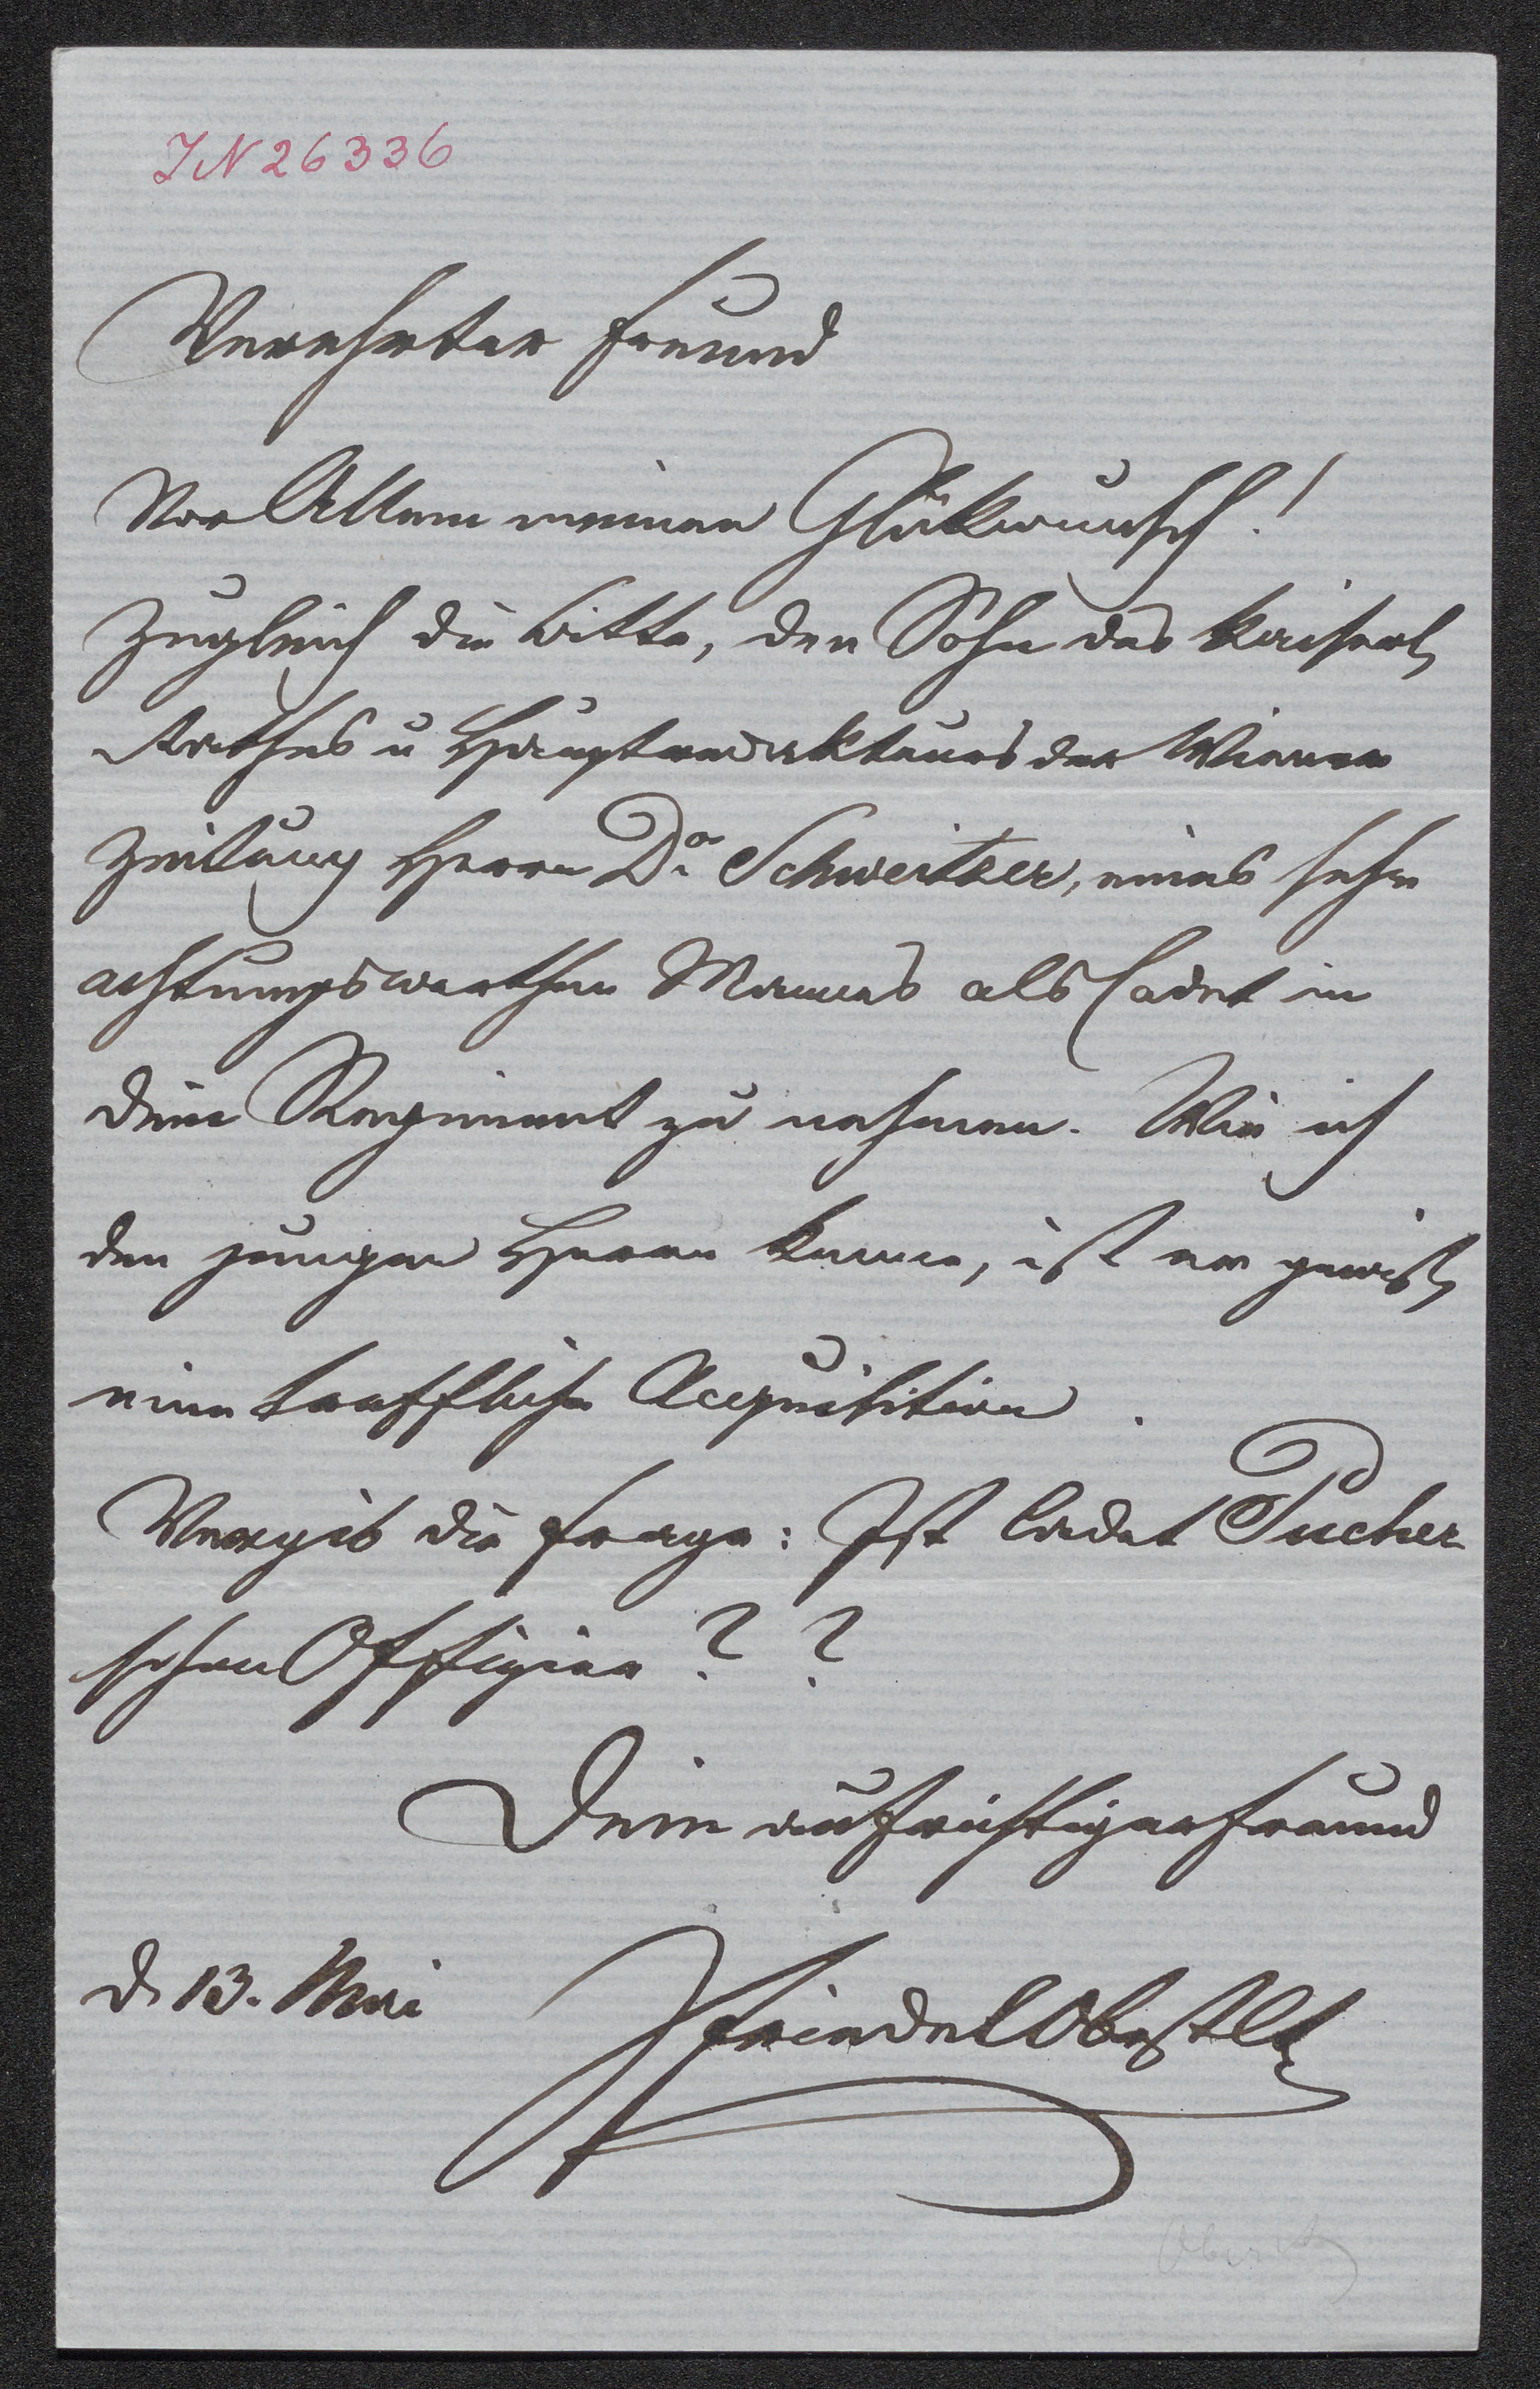 IN 26336
Verehrter Freund
Vor Allem meinen Glükwunsch!
Zugleich die Bitte, den Sohn des kaiserl
Rathes u Hauptredakteurs der Wiener
Zeitung Herrn Dr Schweitzer, eines sehr
achtungswerthen Mannes als Cadet in
Dein Regiment zu nehmen. Wie ich
den jungen Herrn kenne, ist er gewiß
eine treffliche Acquisition.
Vergib die Frage: Ist Cadet Pucher
schon Offizier??
Dein aufrichtiger Freund
d 13. Mai
Friedel Obstlt